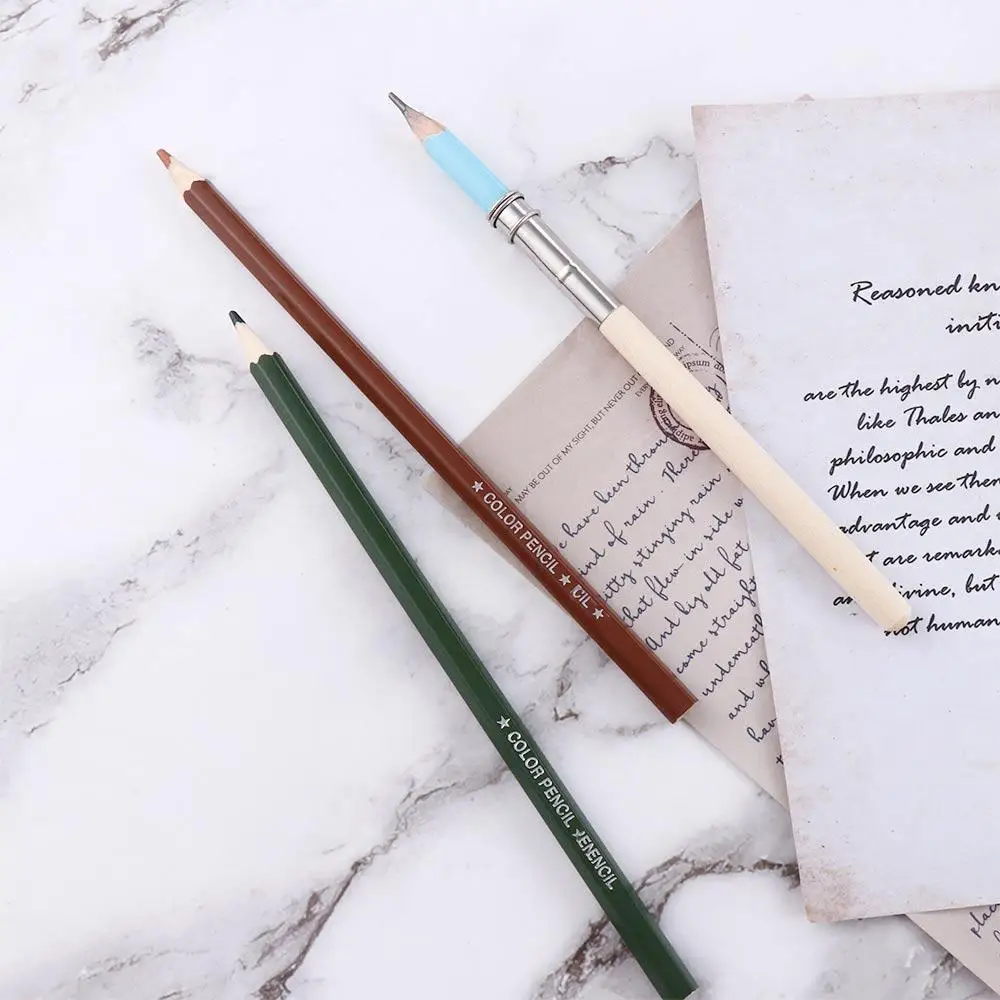 ★ COLOR PENCIL ★ CIL ★
★ COLOR PENCIL ★ENENCIL
MAY BE OUT OF MY SIGHT, BUT NEVER OUT
EVERY
ipsum
have been through
ind of rain. There
itty stinging rain
that flew in side w
And big old fat
come straight
underneath
and w
hav
Reasoned kn
initi
are the highest by n
like Thales an
philosophic and
When we see them
advantage and
t are remark
divine, but
not human